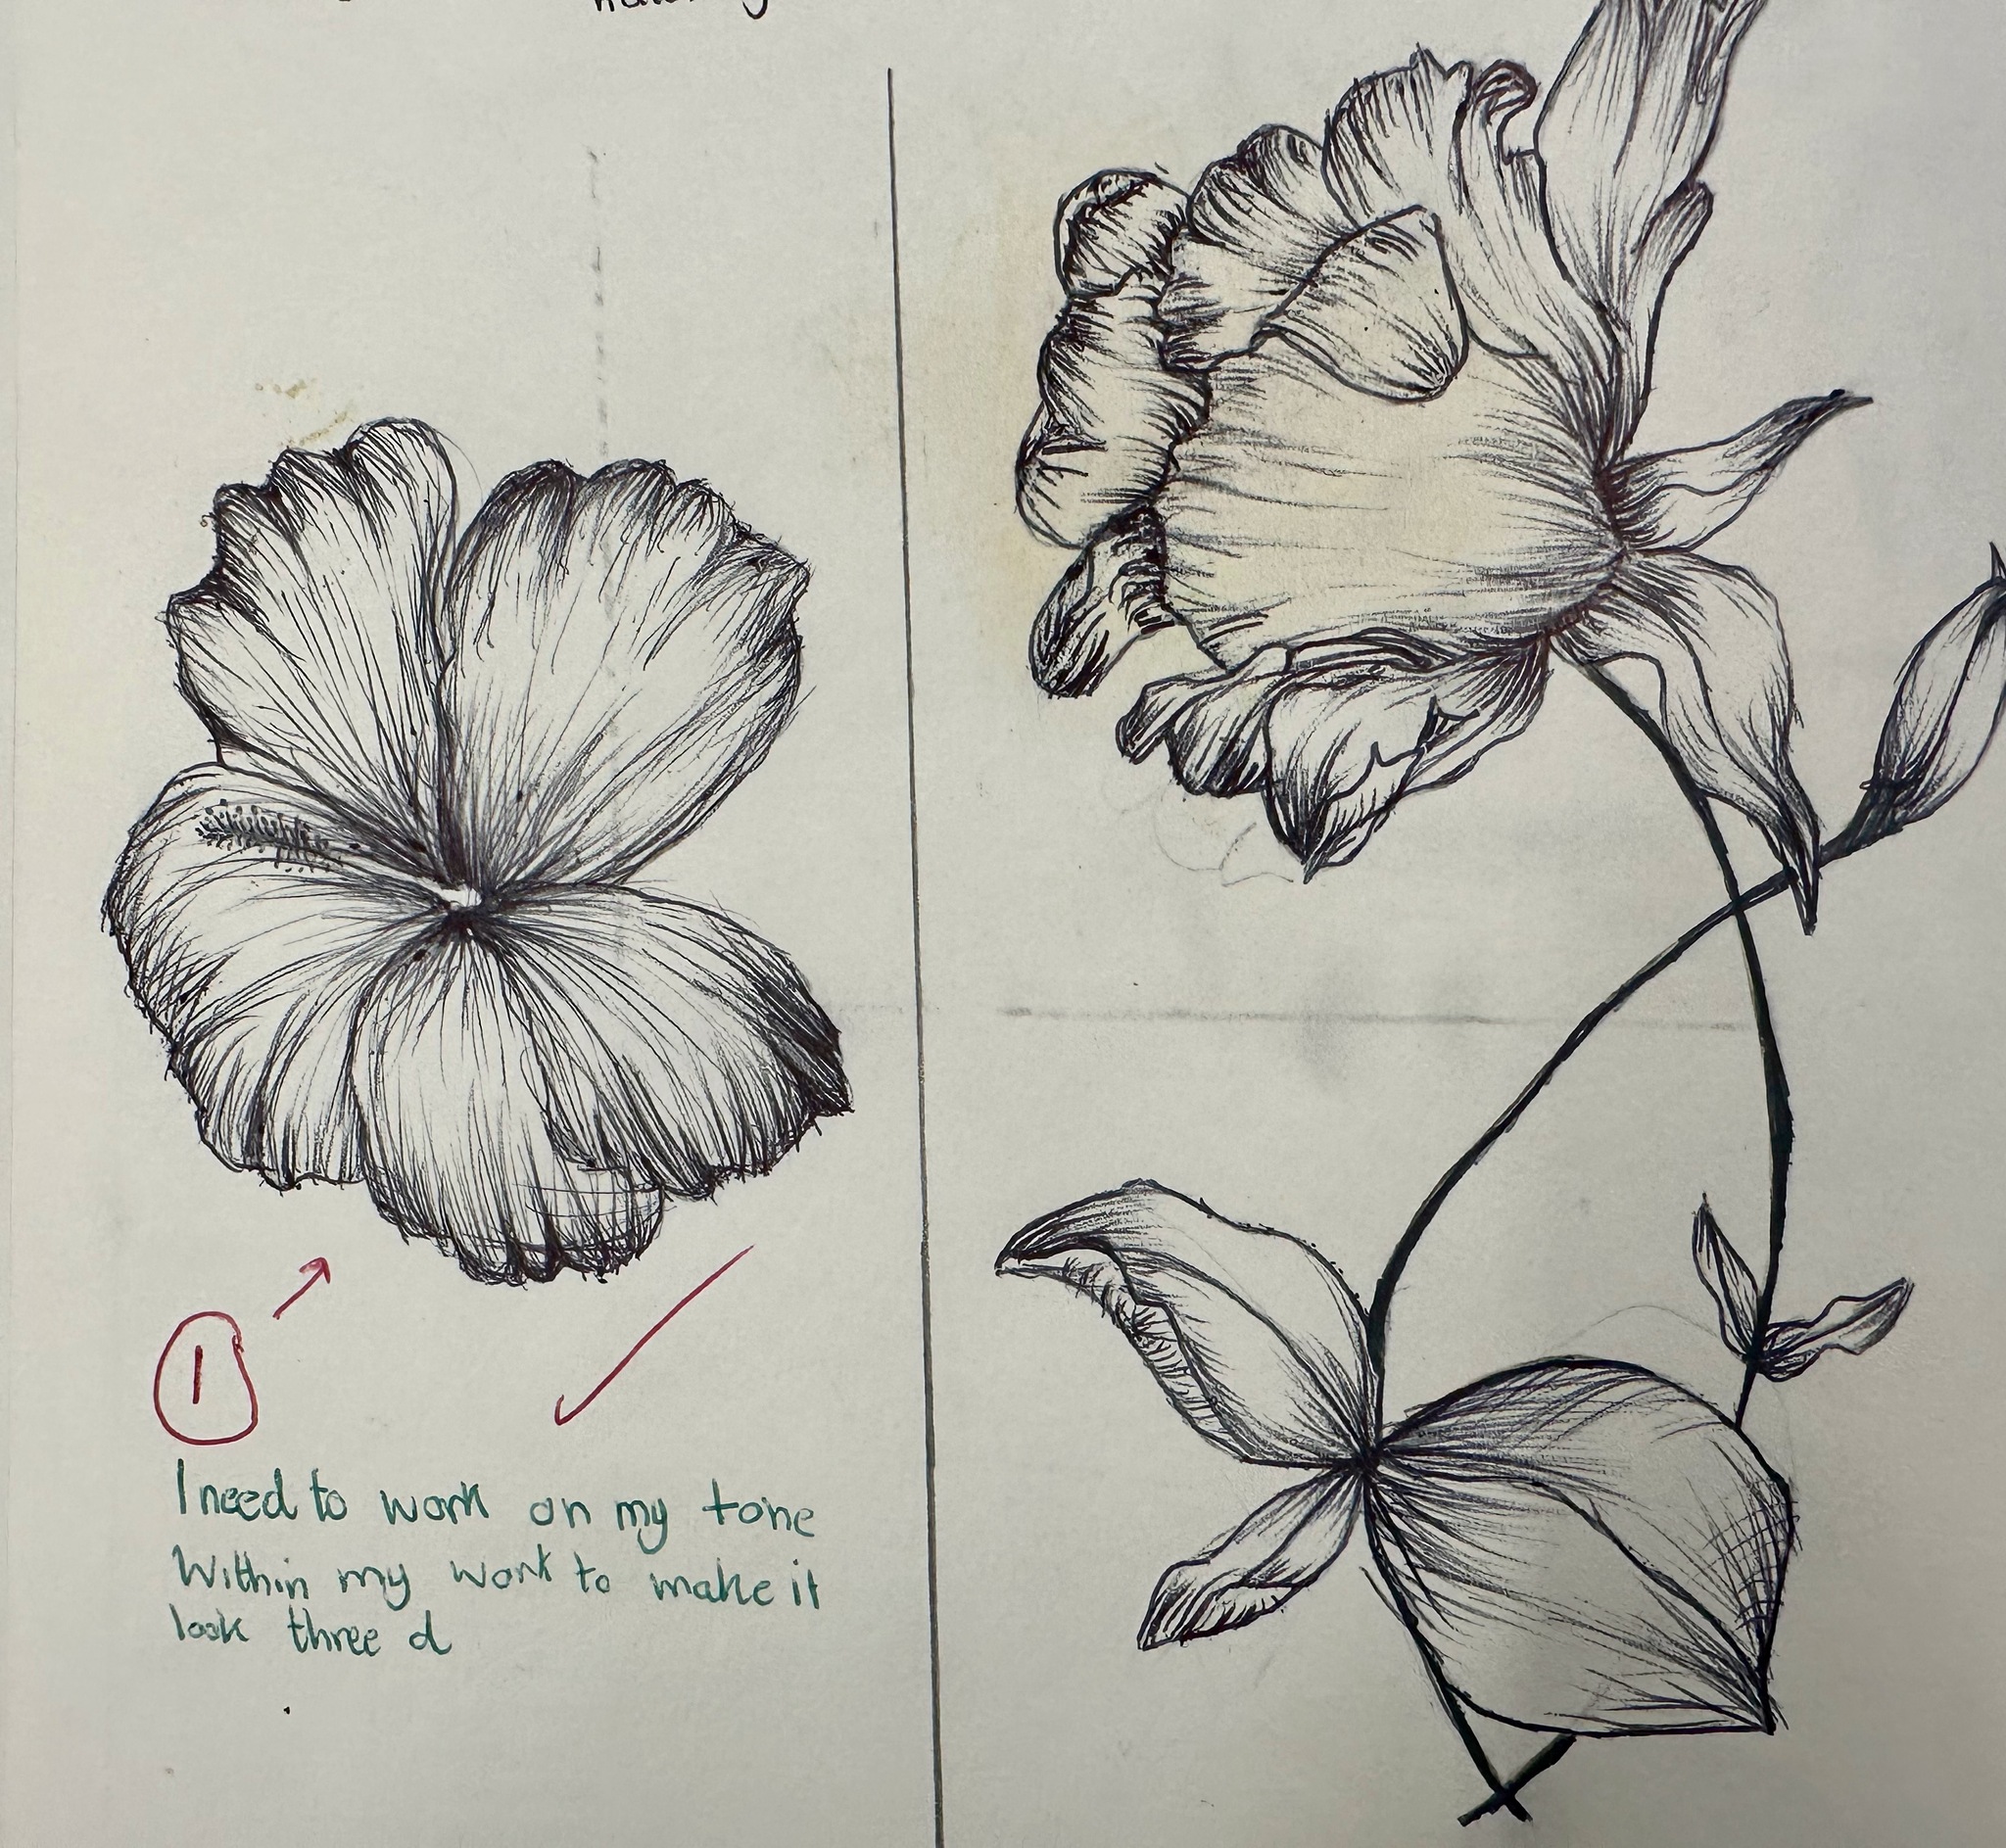 1
I need to work on my tone
Within my work to make it
look three d